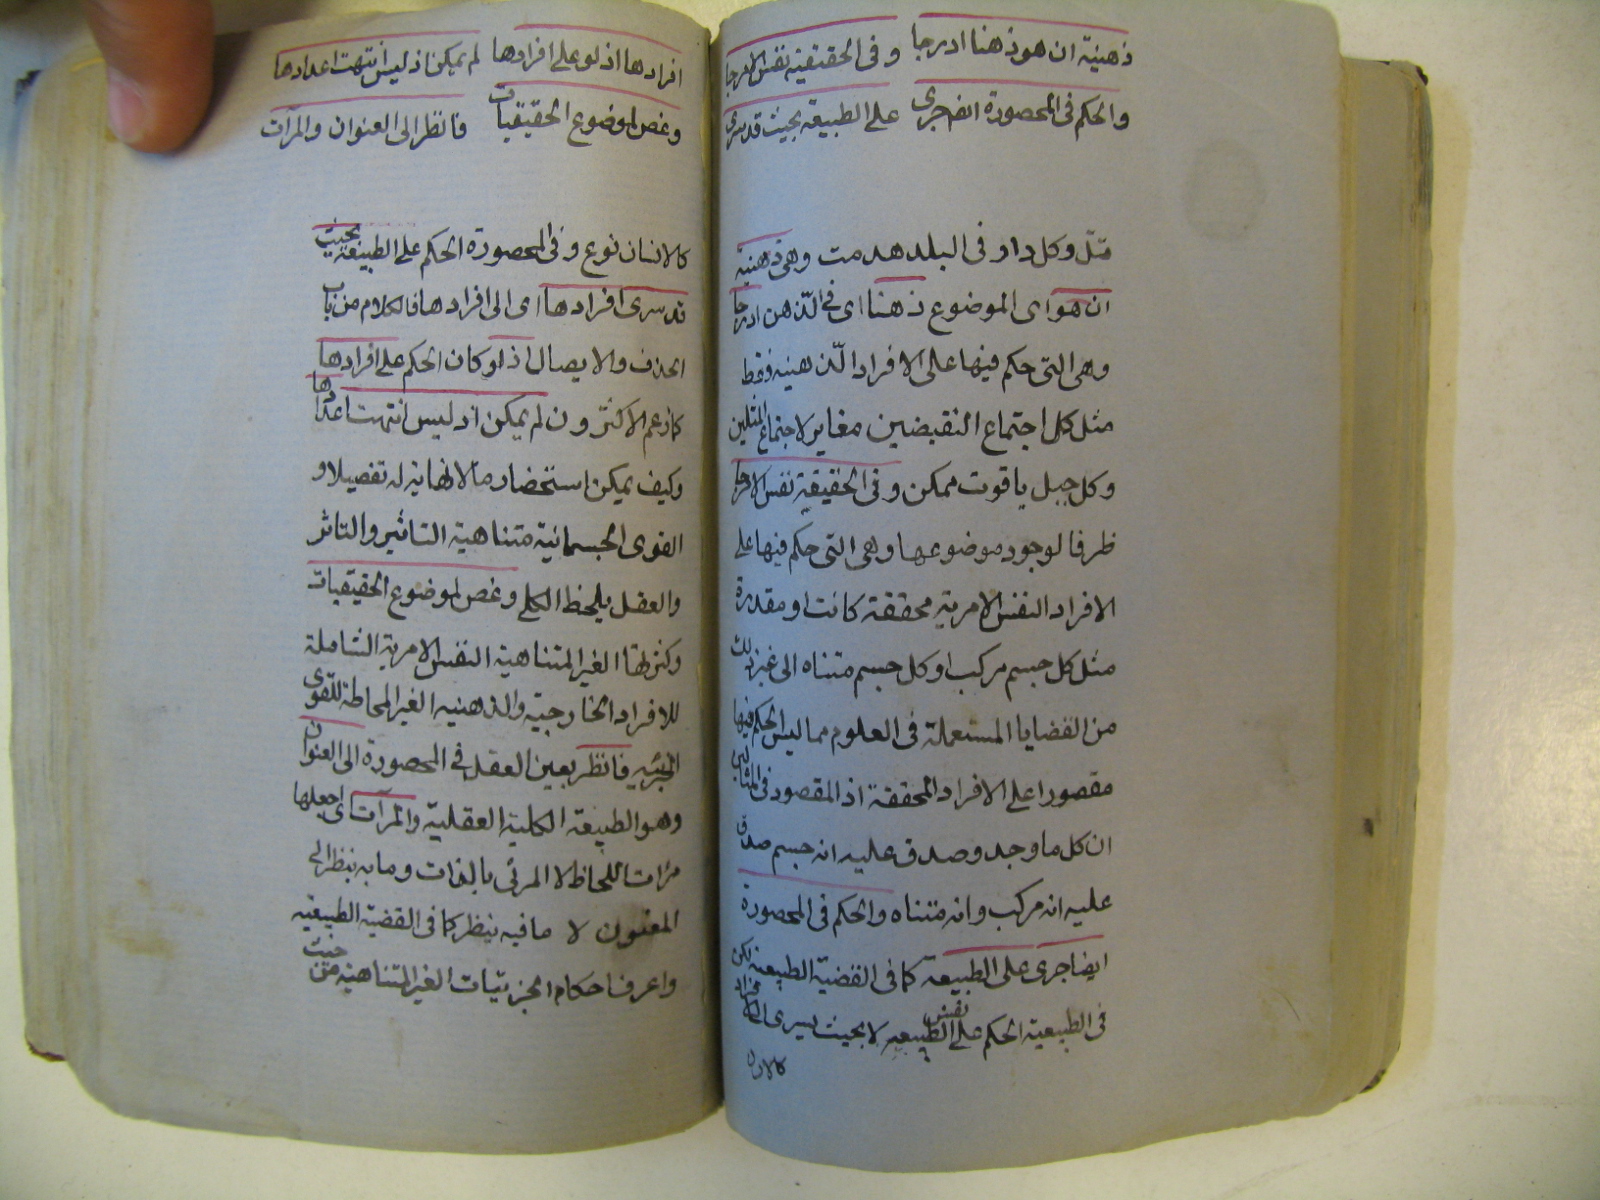 ذهنية ان هو ذهنا ادرجا وفى الحقيقية نفس الامر جا
والحكم فى المحصورة ايضا جرى على الطبيعة بحيث قد سرى
قتل وكل دار فى البلد هدمت وهى ذهنية
ان هو اى الموضوع ذهنا اى فى الذهن ادرجا
وهى التى حكم فيها على الافراد الذهنية فقط
مثل كل اجتماع النقيضين مغاير لاجتماع المثلين
وكل جبل ياقوت ممكن وفى الحقيقية نفس الامر جا
ظرفا لوجود موضوعها وهى التى حكم فيها على
الافراد النفس الامرية محققة كانت او مقدرة
مثل كل جسم مركب او كل جسم متناه الى غير ذلك
من القضايا المستعملة فى العلوم مما ليس الحكم فيها
مقصورا على الافراد المحققة اذ المقصود فى المثالين
ان كل ما وجد وصدق عليه انه جسم صدق
عليه انه مركب وانه متناه والحكم فى المحصورة
ايضا جرى على الطبيعة كما فى القضية الطبيعية لكن
فى الطبيعية الحكم على نفس الطبيعة لا بحيث يسرى الى الافراد
افرادها اذ لو على افرادها لم يمكن اذ ليس انتهت اعدادها
وغص لموضوع الحقيقيات فانظر الى العنوان والمرآت
كالانسان نوع وفى المحصورة الحكم على الطبيعة بحيث
قد سرى افرادها اى الى افرادها فالكلام من باب
الحذف والايصال اذ لو كان الحكم على افرادها
كما زعم الاكثرون لم يمكن اذ ليس انتهت اعدادها
وكيف يمكن استحضار ما لا نهاية له تفصيلا و
القوى الجسمانية متناهية التاثير والتاثر
والعقل يلحظ الكلى وغص لموضوع الحقيقيات
وكثرتها الغير المتناهية النفس الامرية الشاملة
للافراد الخارجية والذهنية الغير المحاطة للقوى
الجزئيه فانظر بعين العقل فى المحصورة الى العنوان
وهو الطبيعة الكلية العقلية والمرآت اى اجعلها
مرآت اللحاظ لا المرئى بالذات وما به ينظر الى
المعنون لا ما فيه ينظر كما فى القضية الطبيعية
واعرف احكام الجزئيات الغير المتناهية من حيث